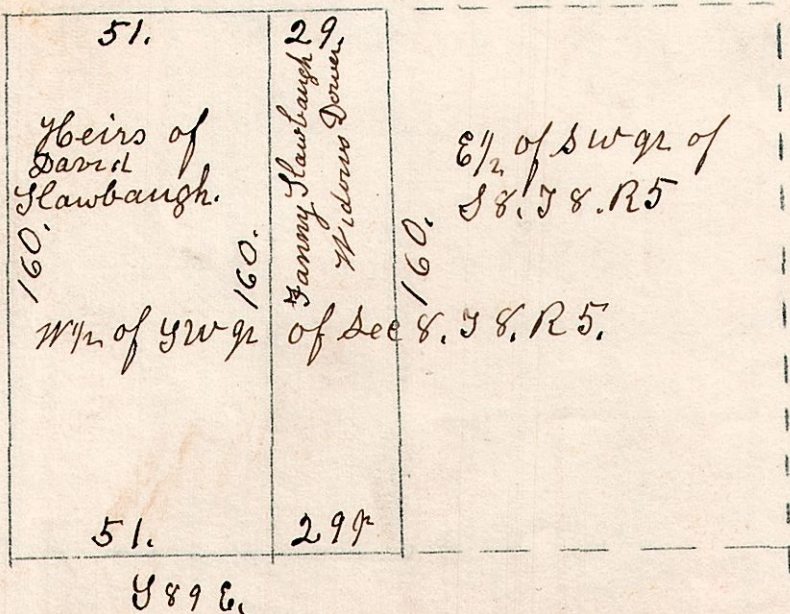 51.
29.
Heirs of
David
Slawbaugh.
Fanny Slawbaugh
Widows Dower
E 1/2 of SW qr of
S 8. T 8. R 5
160.
160.
160.
W 1/2 of SW qr of Sec 8. T 8. R 5.
51.
29 p
S 89 E.